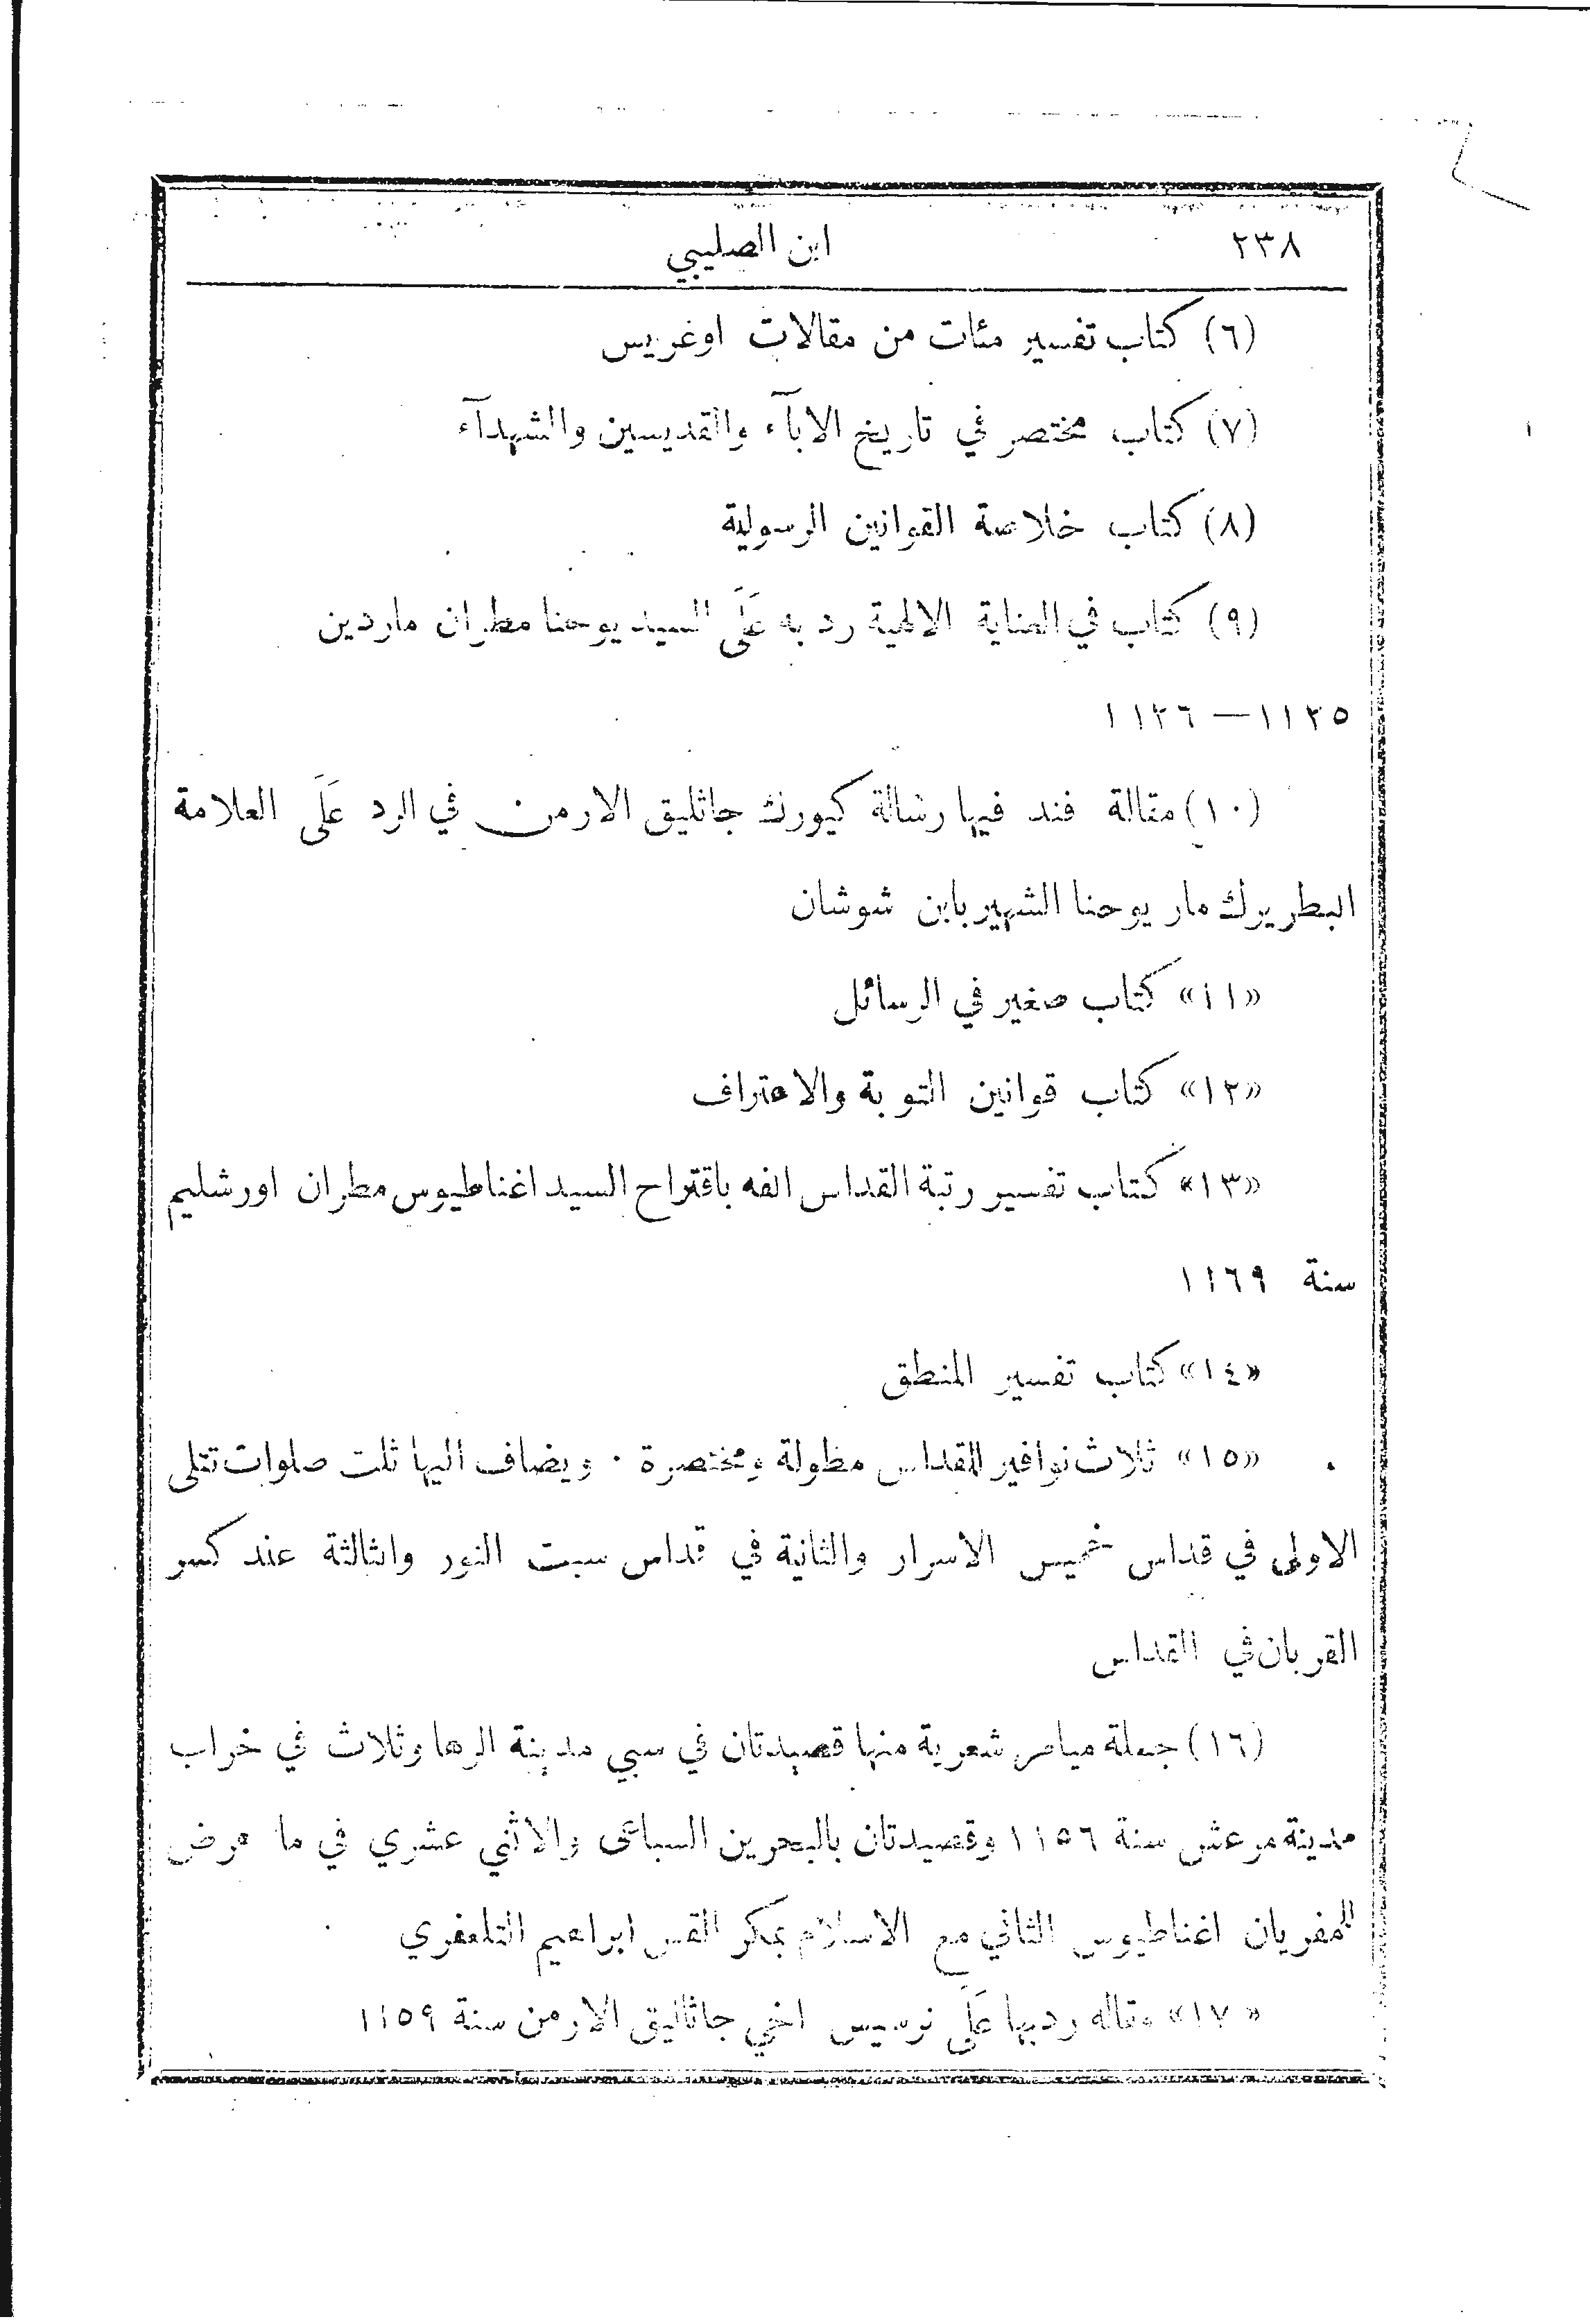 ٢٣٨ ابن الصليبي
(٦) كتاب تفسير مئات من مقالات اوغريس
(٧) كتاب مختصر في تاريخ الابآء والقديسين والشهدآء
(٨) كتاب خلاصة القوانين الرسولية
(٩) كتاب في العناية الالهية رد به عَلَى السيد يوحنا مطران ماردين
١١٢٥ — ١١٢٦
(١٠) مقالة فند فيها رسالة كيورك جاثليق الارمن في الرد عَلَى العلامة
البطريرك مار يوحنا الشهير بابن شوشان
«١١» كتاب صغير في الرسائل
«١٢» كتاب قوانين التوبة والاعتراف
«١٣» كتاب تفسير رتبة القداس الفه باقتراح السيد اغناطيوس مطران اورشليم
سنة ١١٦٩
«١٤» كتاب تفسير المنطق
«١٥» ثلاث نوافير للقداس مطولة ومختصرة . ويضاف اليها ثلث صلوات تتلى
الاولى في قداس خميس الاسرار والثانية في قداس سبت النور والثالثة عند كسر
القربان في القداس
(١٦) جملة ميامر شعرية منها قصيدتان في سبي مدينة الرها وثلاث في خراب
مدينة مرعش سنة ١١٥٦ وقصيدتان بالبحرين السباعى والاثني عشري في ما عرض
للمفريان اغناطيوس الثاني مع الاسلام بمكر القس ابراهيم التلعفري
«١٧» مقاله رد بها عَلَى نرسيس اخي جاثاليق الارمن سنة ١١٥٩